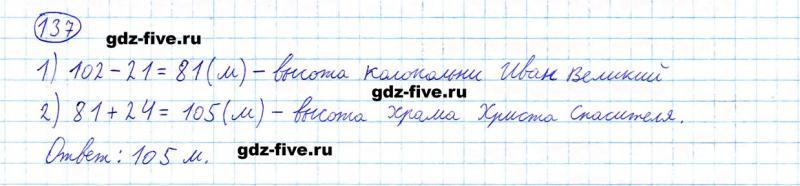 137
gdz-five.ru
1) 102 - 21 = 81 (м) - высота колокольни Иван Великий
gdz-five.ru
2) 81 + 24 = 105 (м) - высота Храма Христа Спасителя.
Ответ: 105 м.
gdz-five.ru